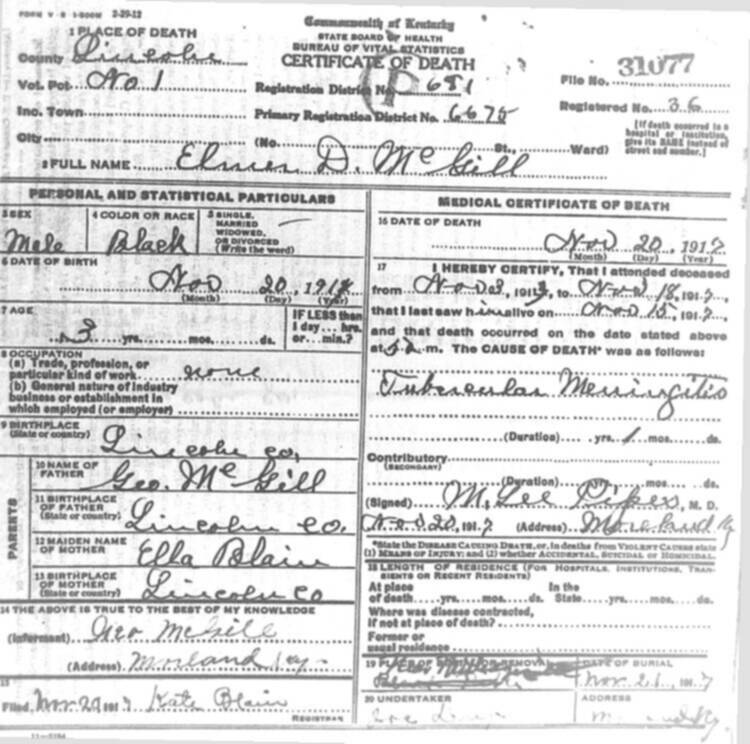 FORM V S 1-500M 2-29-12
Commonwealth of Kentucky
STATE BOARD OF HEALTH
BUREAU OF VITAL STATISTICS
CERTIFICATE OF DEATH
1 PLACE OF DEATH
County Lincoln
Vot. Pct. No 1
Inc. Town
City
Registration District No. 681
Primary Registration District No. 6675
(No. St., Ward)
File No. 31077
Registered No. 36
[If death occurred in a
hospital or institution,
give its NAME instead of
street and number.]
2 FULL NAME Elmer D. McGill
PERSONAL AND STATISTICAL PARTICULARS
3 SEX
Male
4 COLOR OR RACE
Black
5 SINGLE,
MARRIED
WIDOWED,
OR DIVORCED
(Write the word)
6 DATE OF BIRTH
Nov 20, 191
(Month) (Day) (Year)
7 AGE
3 yrs. mos. ds.
IF LESS than
1 day... hrs.
or... min.?
8 OCCUPATION
(a) Trade, profession, or
particular kind of work none
(b) General nature of industry
business or establishment in
which employed (or employer)
9 BIRTHPLACE
(State or country) Lincoln Co,
PARENTS
10 NAME OF
FATHER Geo. McGill
11 BIRTHPLACE
OF FATHER
(State or country) Lincoln Co.
12 MAIDEN NAME
OF MOTHER Ella Blain
13 BIRTHPLACE
OF MOTHER
(State or country) Lincoln Co
14 THE ABOVE IS TRUE TO THE BEST OF MY KNOWLEDGE
(Informant) Geo McGill
(Address) Moreland Ky
15
Filed Nov 20 1917 Kate Blain
REGISTRAR
MEDICAL CERTIFICATE OF DEATH
16 DATE OF DEATH
Nov 20, 1917
(Month) (Day) (Year)
17 I HEREBY CERTIFY, That I attended deceased
from Nov 3, 191 , to Nov 18, 1917,
that I last saw him alive on Nov 15, 1917,
and that death occurred on the date stated above
at m. The CAUSE OF DEATH* was as follows:
Tubercular Meningitis
(Duration) yrs. 1 mos. ds.
Contributory
(SECONDARY)
(Duration) yrs. mos. ds.
(Signed) M. Lee Pipes, M. D.
Nov 20, 1917 (Address) Moreland Ky
*State the DISEASE CAUSING DEATH, or, in deaths from VIOLENT CAUSES state
(1) MEANS OF INJURY; and (2) whether ACCIDENTAL, SUICIDAL or HOMICIDAL.
18 LENGTH OF RESIDENCE (FOR HOSPITALS, INSTITUTIONS, TRAN-
SIENTS OR RECENT RESIDENTS)
At place
of death yrs. mos. ds.
In the
State yrs. mos. ds.
Where was disease contracted,
if not at place of death?
Former or
usual residence
19 PLACE OF BURIAL OR REMOVAL
DATE OF BURIAL
Nov. 21, 1917
20 UNDERTAKER
ADDRESS